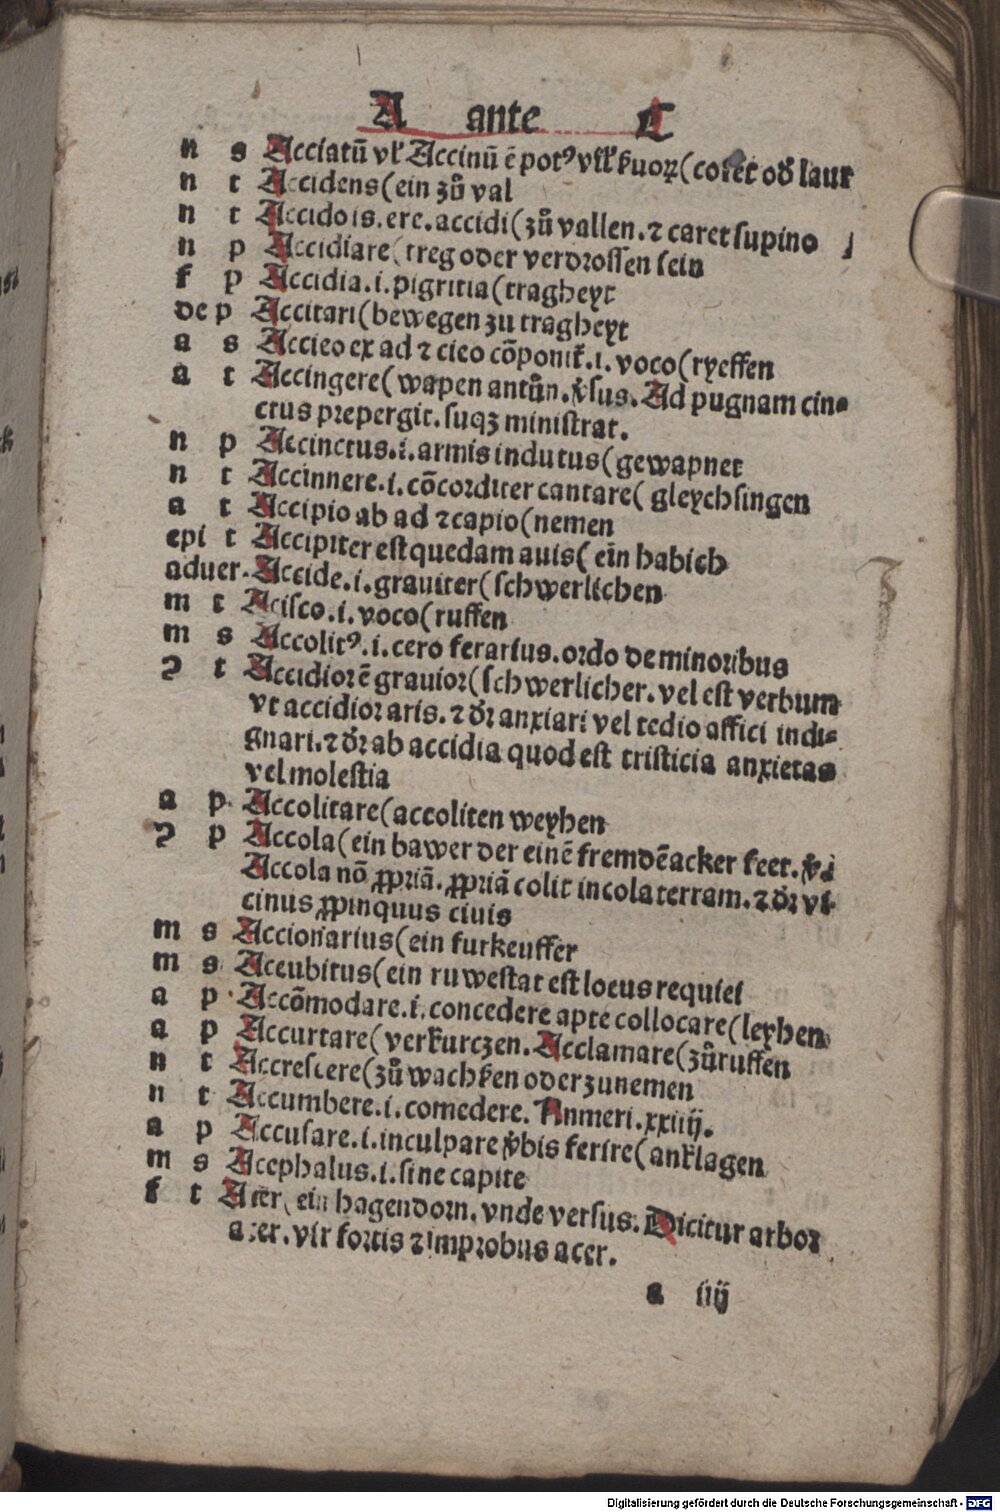 A ante C
n s Acciatū vl' Accinū ē potꝰ vĺĺ kuoꝝ (cofet od' laur
n t Accidens (ein zů val
n t Accido is. ere. accidi (zů vallen. ⁊ caret supino
n p Accidiare (treg oder verdrossen sein
f p Accidia .i. pigritia (tragheyt
de p Accitari (bewegen zu tragheyt
a s Accieo ex ad ⁊ cieo cōponit̄ .i. voco (ryeffen
a t Accingere (wapen antůn. v̓sus. Ad pugnam cin-
ctus prepergit. suqʒ ministrat.
n p Accinctus .i. armis indutus (gewapnet
n t Accinnere .i. cōcorditer cantare (gleychsingen
a t Accipio ab ad ⁊ capio (nemen
epi t Accipiter est quedam auis (ein habich
aduer. Accide .i. grauiter (schwerlichen
m t Acisco .i. voco (ruffen
m s Accolitꝰ .i. cero ferarius. ordo de minoribus
ꝯ t Accidior ē grauior (schwerlicher. vel est verbum
vt accidior aris. ⁊ dr̄ anxiari vel tedio affici indi-
gnari. ⁊ dr̄ ab accidia quod est tristicia anxietas
vel molestia
a p Accolitare (accoliten weyhen
ꝯ p Accola (ein bawer der einē fremdē acker keet. v̓s
Accola nō ꝓpriā. ꝓpriā colit incola terram. ⁊ dr̄ vi-
cinus ꝓpinquus ciuis
m s Accionarius (ein furkeuffer
m s Accubitus (ein ruwestat est locus requiei
a p Accōmodare .i. concedere apte collocare (leyhen
a p Accurtare (verkurczen. Acclamare (zůruffen
n t Accrescere (zů wachsen oder zunemen
n t Accumbere .i. comedere. Numeri. xxiiij.
a p Accusare .i. inculpare v̓bis ferire (anklagen
m s Acephalus .i. sine capite
f t Acer (ein hagendorn. vnde versus. Dicitur arbor
acer. vir fortis ⁊ improbus acer.
a iij
Digitalisierung gefördert durch die Deutsche Forschungsgemeinschaft - DFG